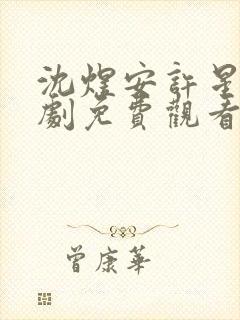 沈煜安許星
劇免費觀看
曾康華